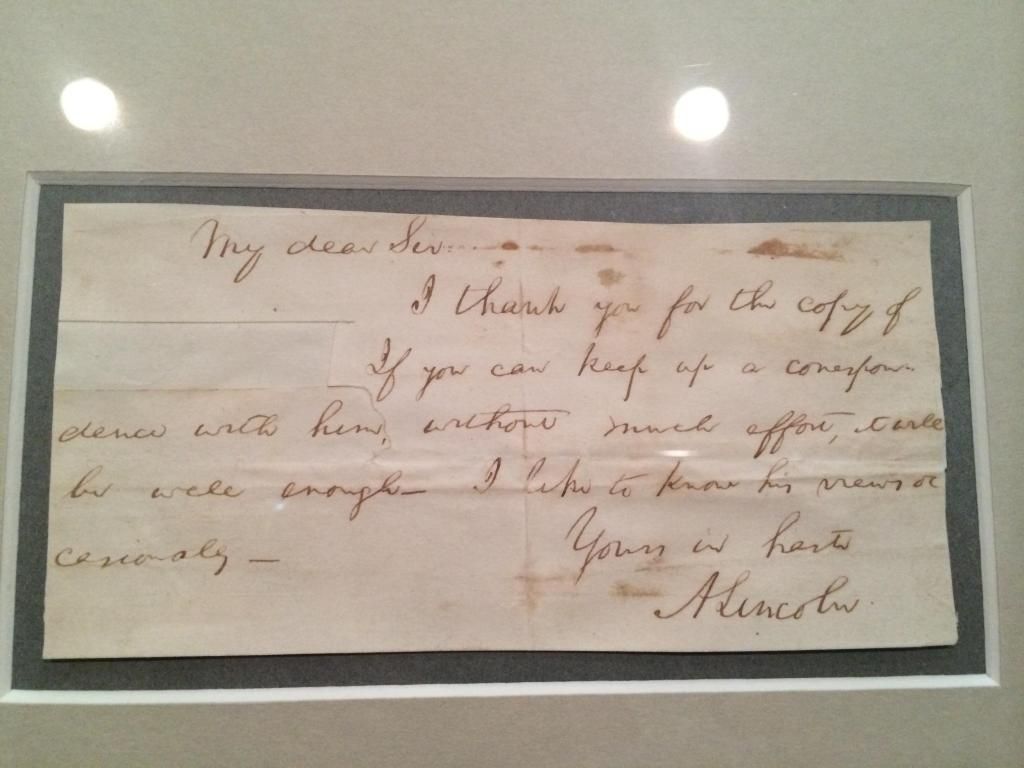 My dear Sir:
I thank you for the copy of
If you can keep up a correspon-
dence with him, without much effort, it will
be well enough— I like to know his views oc
casionally—
Yours in haste
A Lincoln